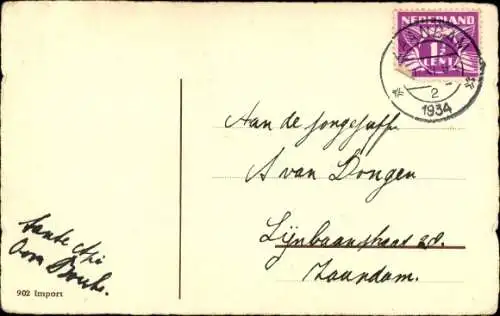 NEDERLAND
1½
CENT
ZAANDAM
2
1934
Aan de jongejuffr.
A van Dongen
Lijnbaanstraat 28.
Zaandam.
tante
Oom
902 Import